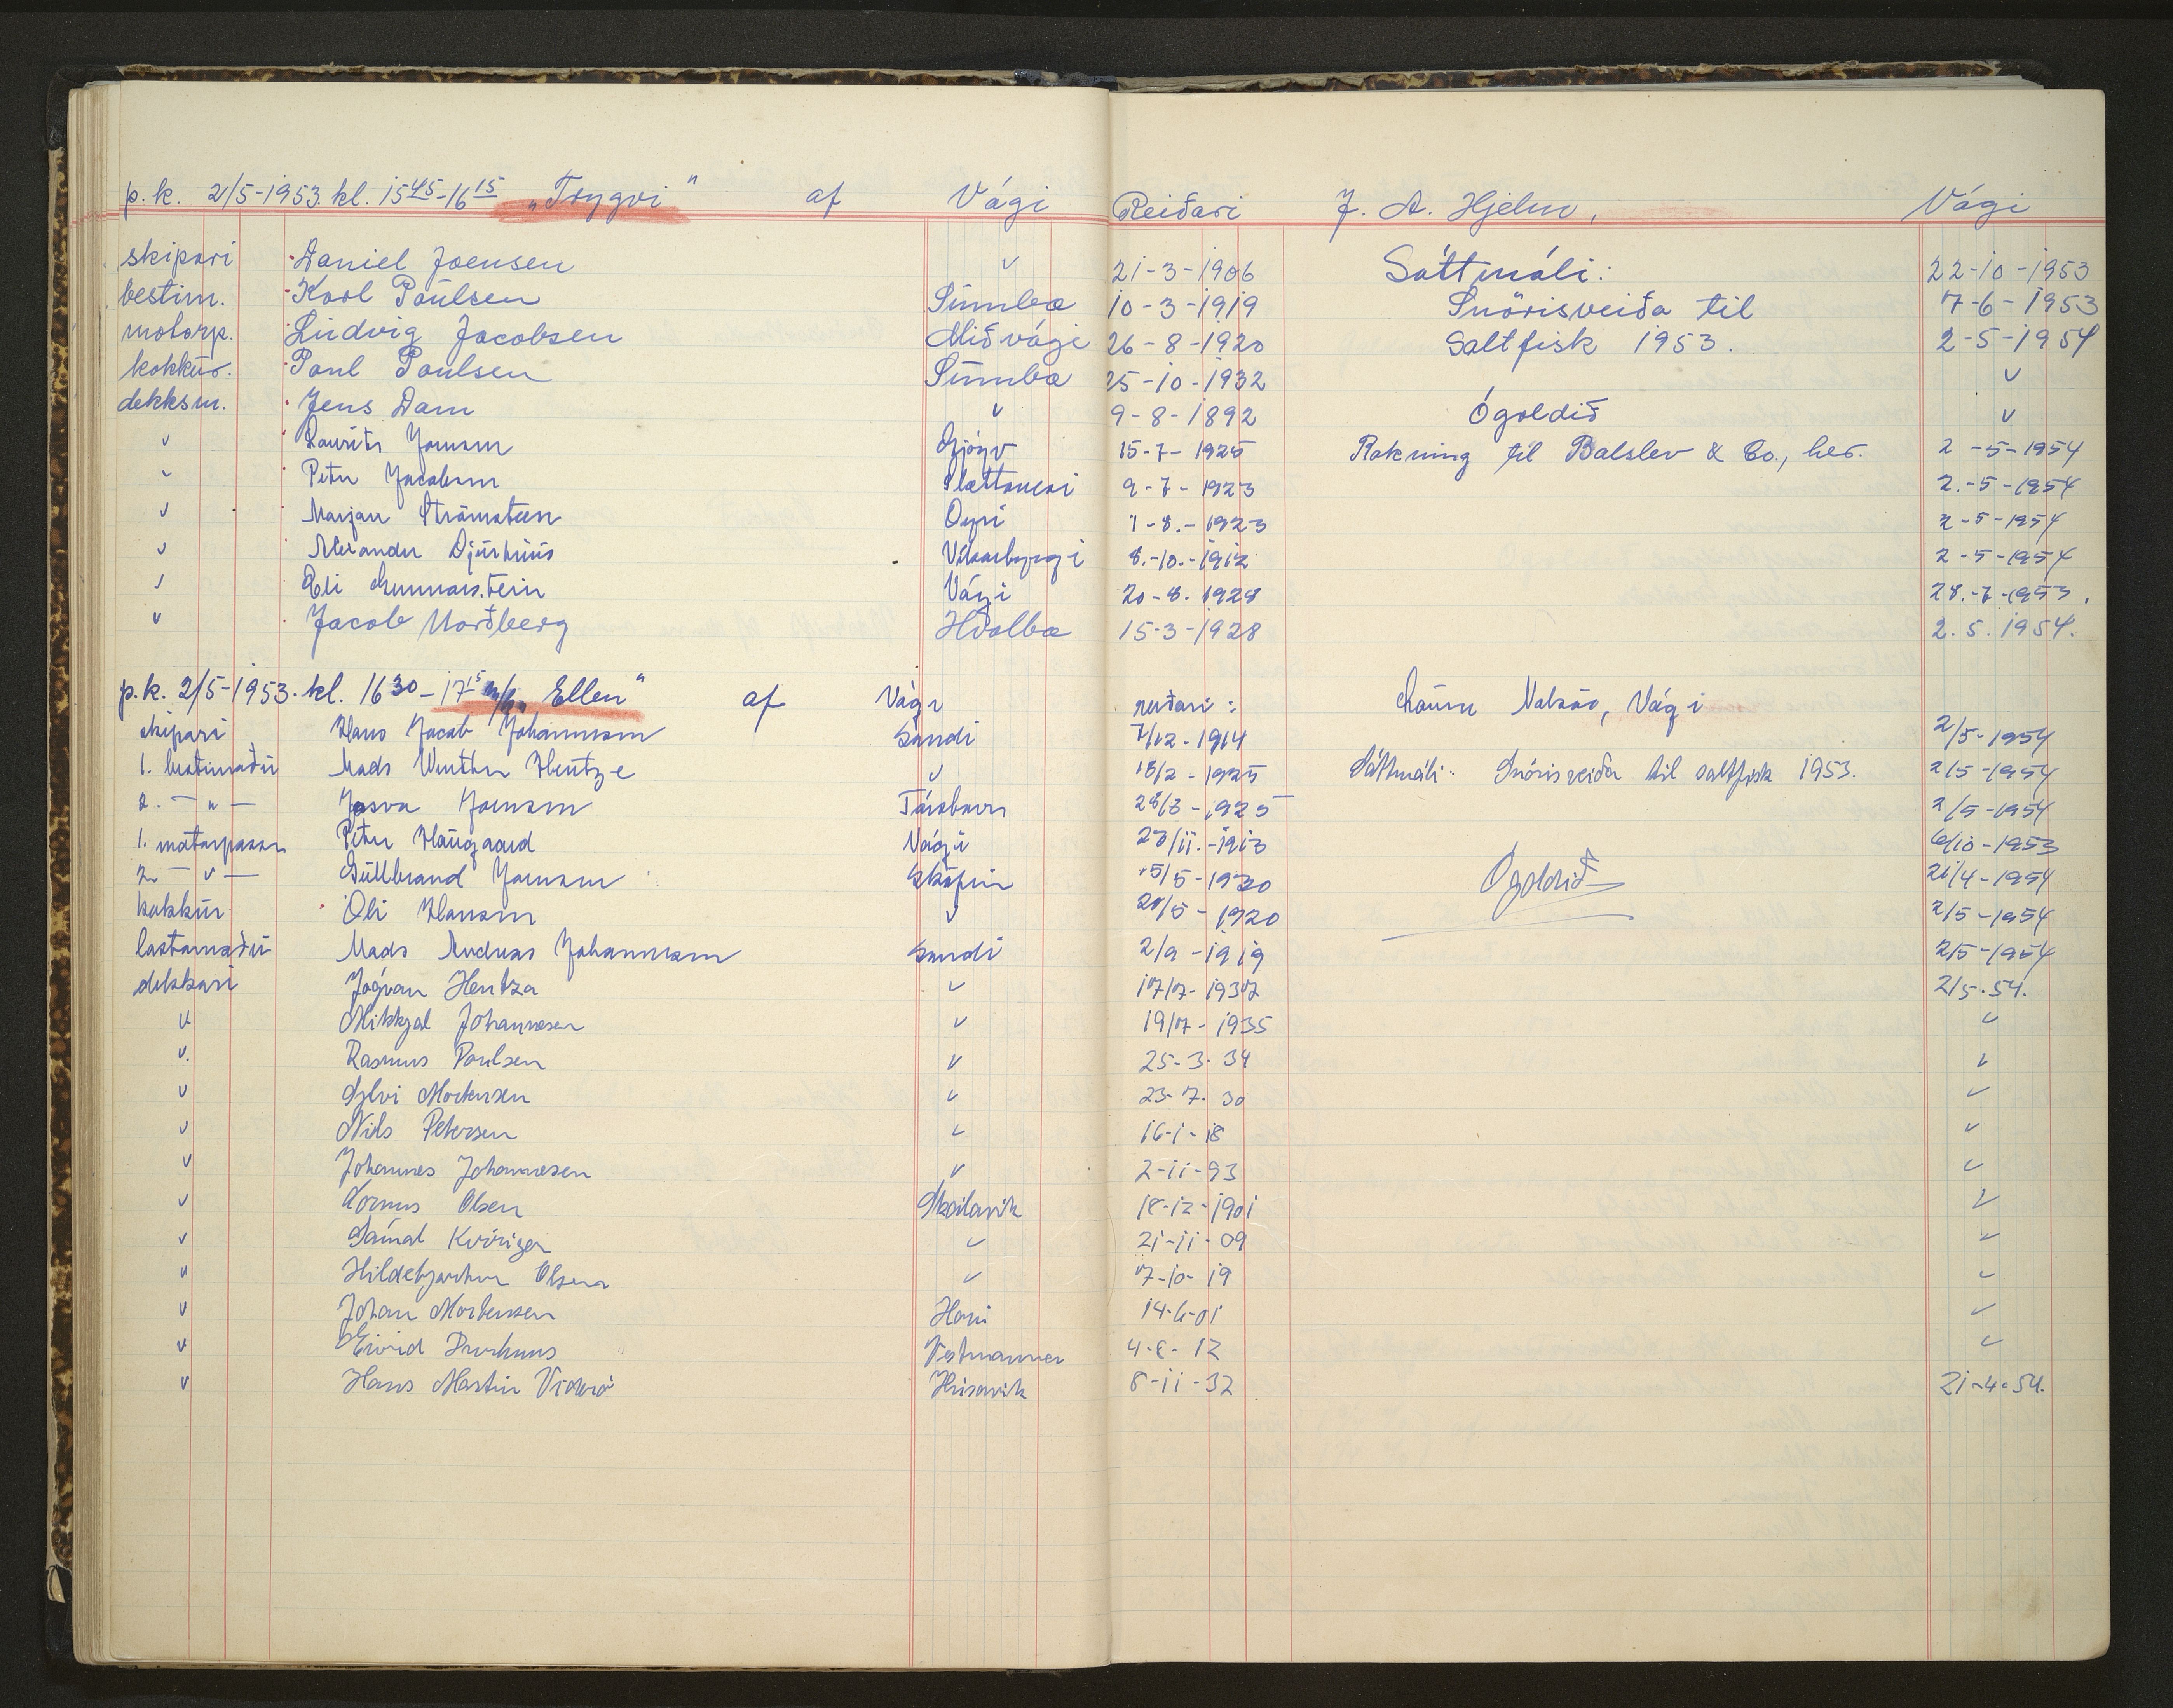 p. k. 2/5-1953. kl. 15 45 - 16 15 „Trygvi“ af Vági Reiðari J. A. Hjelm, Vági
skipari Daniel Joensen v 21-3-1906 Sáttmáli: 22-10-1953
bestim. Karl Poulsen Sumba 10-3-1919 Snørisveiða til 7-6-1953
motorp. Ludvig Jacobsen Miðvági 26-8-1920 Saltfisk 1953. 2-5-1954
kokkur. Poul Poulsen Sumba 25-10-1932 v
dekksm. Jens Dam v 9-8-1892 Ógoldið v
v Laurits Joensen Gjógv 15-7-1925 Rokning til Balslev & Co., her. 2-5-1954
v Petur Jacobsen 9-7-1923 2.-5-1954
v Marjan Strömsteen Oyri 1-8.-1923 2-5-1954
v Alexandur Djurhuus Vikarbyrgi 8.-10.-1912 2-5-1954
v Eli Gunnarstein Vági 20-8.1928 28.-7-1953.
v Jacob Norðberg Hvalba 15-3-1928 2.5.1954.
p. k. 2/5-1953. kl. 16 30 - 17 15 m/k „Ellen“ af Vági reiðari: Vági
skipari Hans Jacob Johannesen Sandi 7/12-1914 2/5-1954
1. bestimaður Mads Winther Hentze v 18/2-1925 Sáttmáli: Snørisveiða til saltfisk 1953. 2/5-1954
2. — „ — Jasva Joensen 28/3-1925 2/5-1954
1. motorpassari Petur Haugaard Vági 23/11.-1913 6/10-1953
2. — v — Gullbrand Joensen Skopun 15/5-1930 Ógoldið 21/4-1954
kokkur Oli Hansen v 20/5-1920 2/5-1954
lastamaður Mads Andreas Johannesen Sandi 2/9-1919 2/5-1954
dekkari Jógvan Hentza v 17/7-1937 2/5.54.
v Mikkjal Johannesen v 19/7-1935 v
v. Rasmus Poulsen v 25-3-34 v
v Sylvi Mortensen v 23-7-30 v
v Nils Petersen v 16-1-18 v
v Johannes Johannesen v 2-11-93 v
v Olsen Skálavik 18-12-1901 v
v Sámal v 21-11-09 v
v Hildebjartur Olsen v 7-10-19 v
v Johan Mortensen 14-6-01 v
v Eivind Vestmanna 4-8-12 v
v Hans Martin Viderö Húsavik 8-11-32 21-4-54.